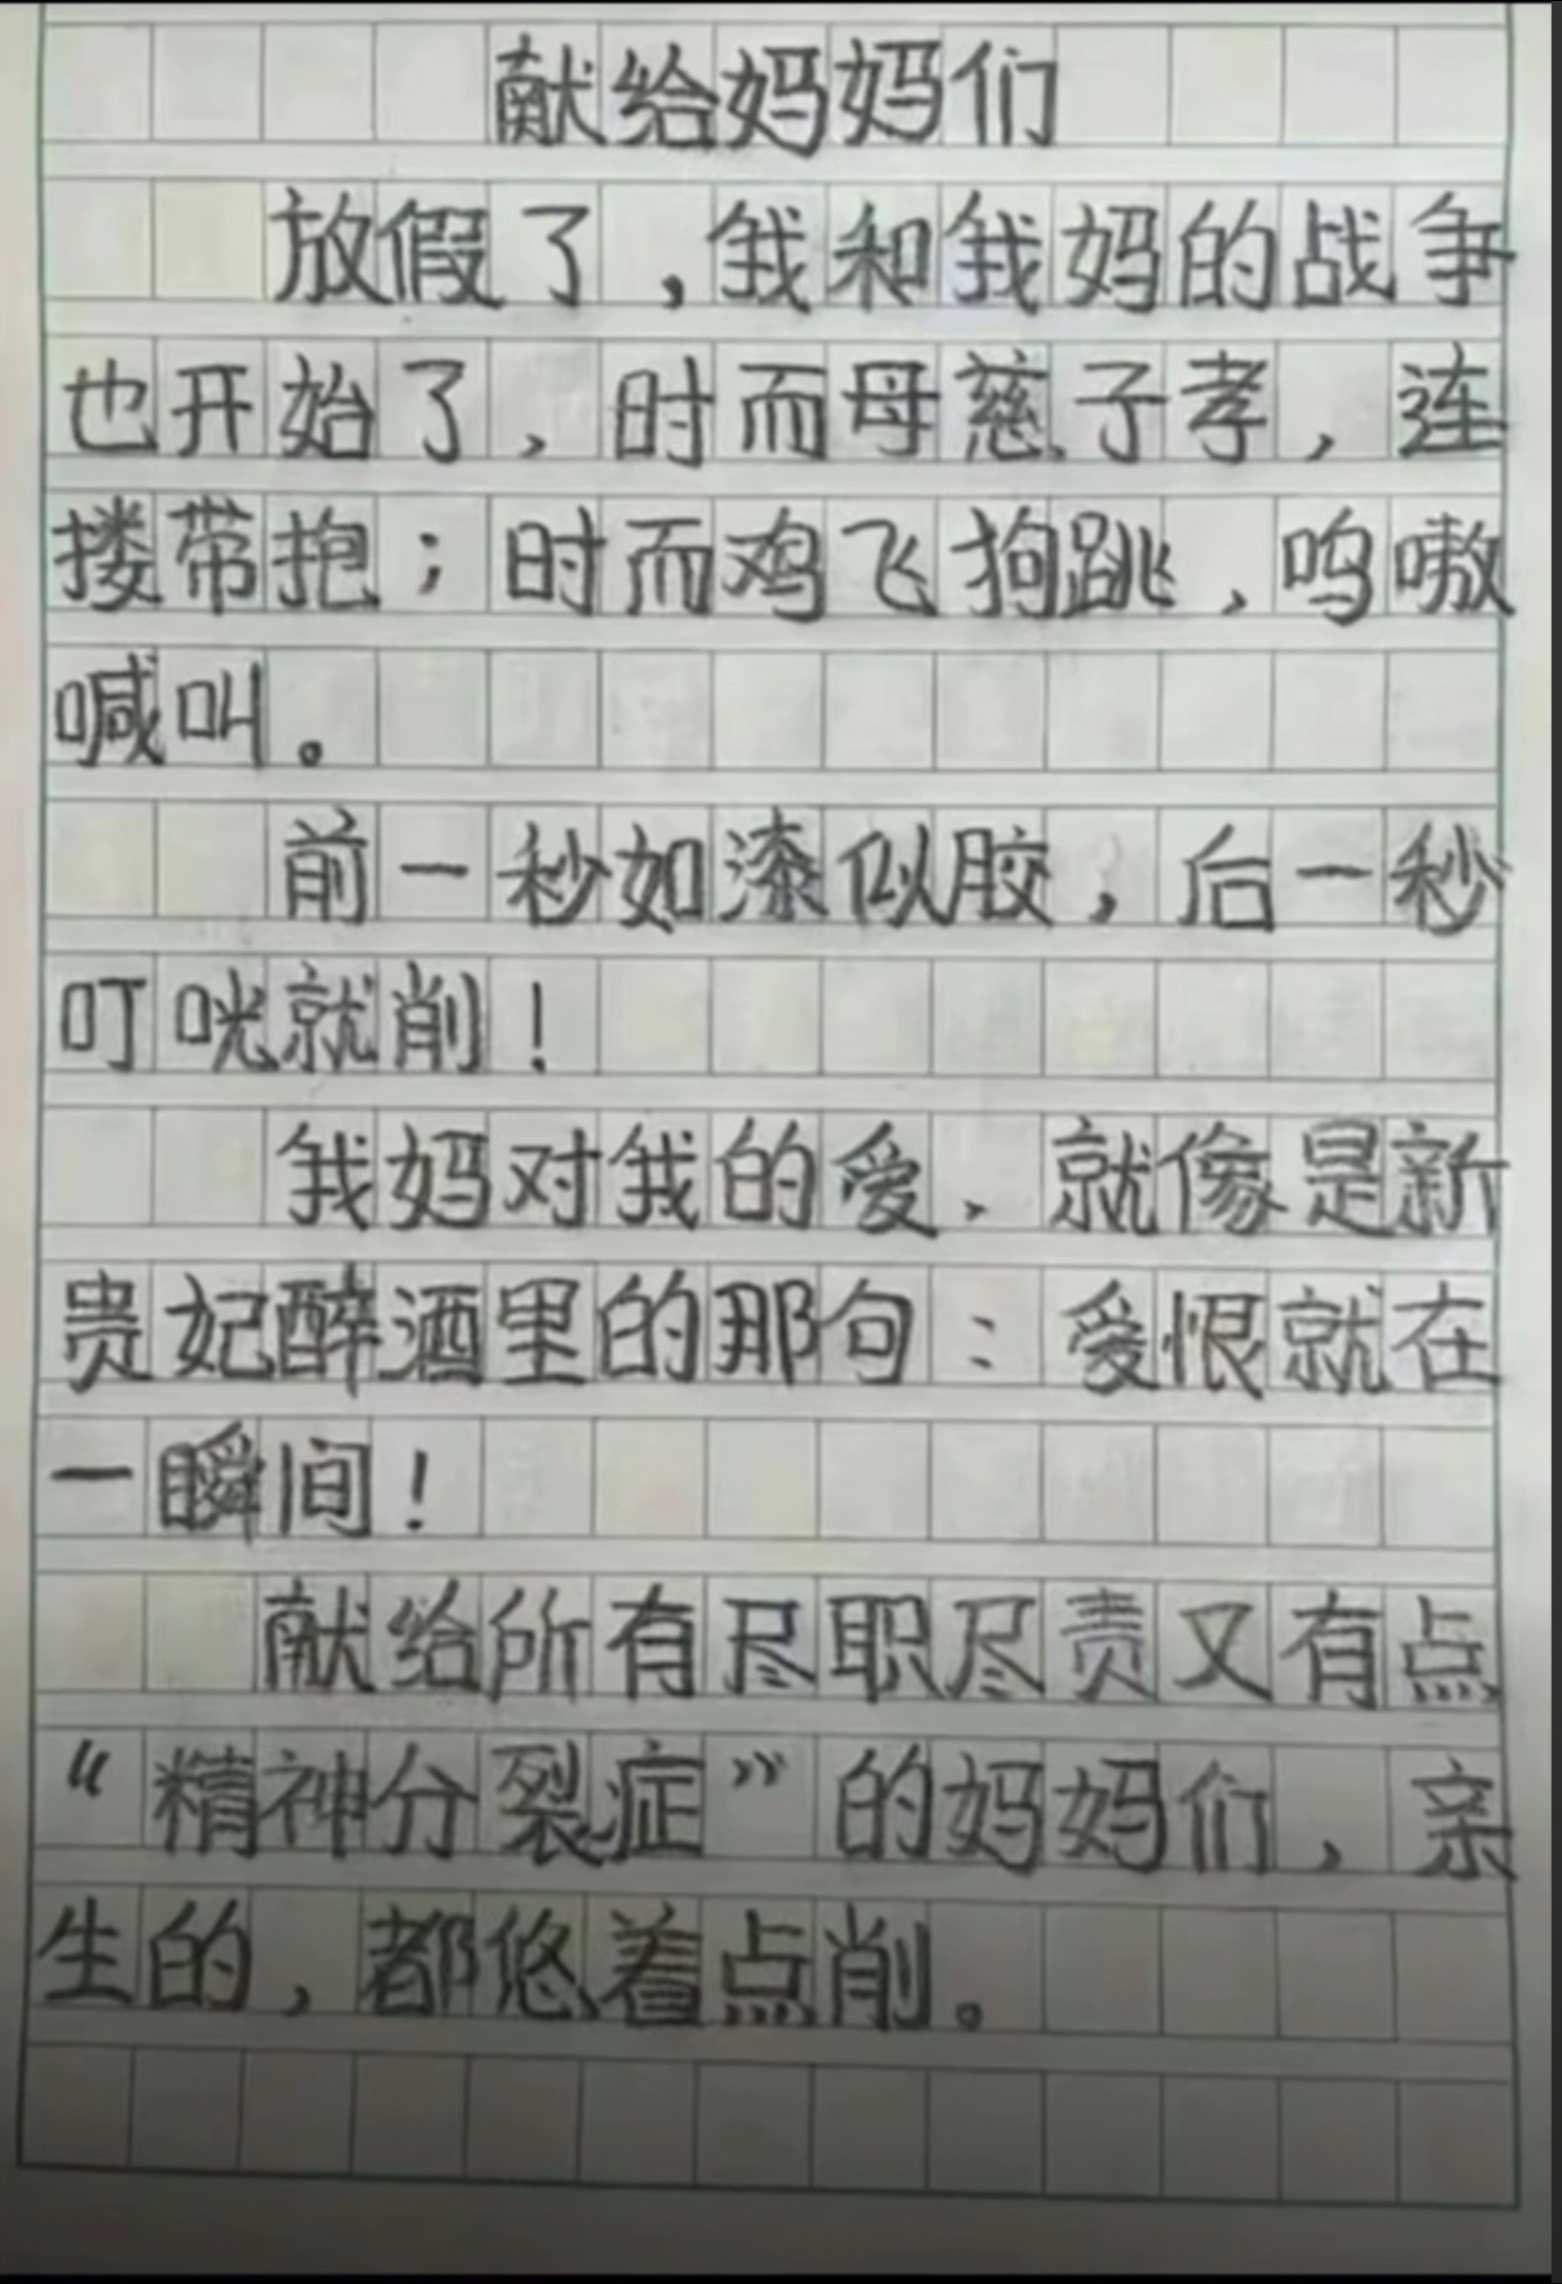 献给妈妈们
放假了，我和我妈的战争
也开始了，时而母慈子孝，连
搂带抱；时而鸡飞狗跳，呜嗷
喊叫。
前一秒如漆似胶，后一秒
叮咣就削！
我妈对我的爱、就像是新
贵妃醉酒里的那句：爱恨就在
一瞬间！
献给所有尽职尽责又有点
“精神分裂症”的妈妈们，亲
生的，都悠着点削。